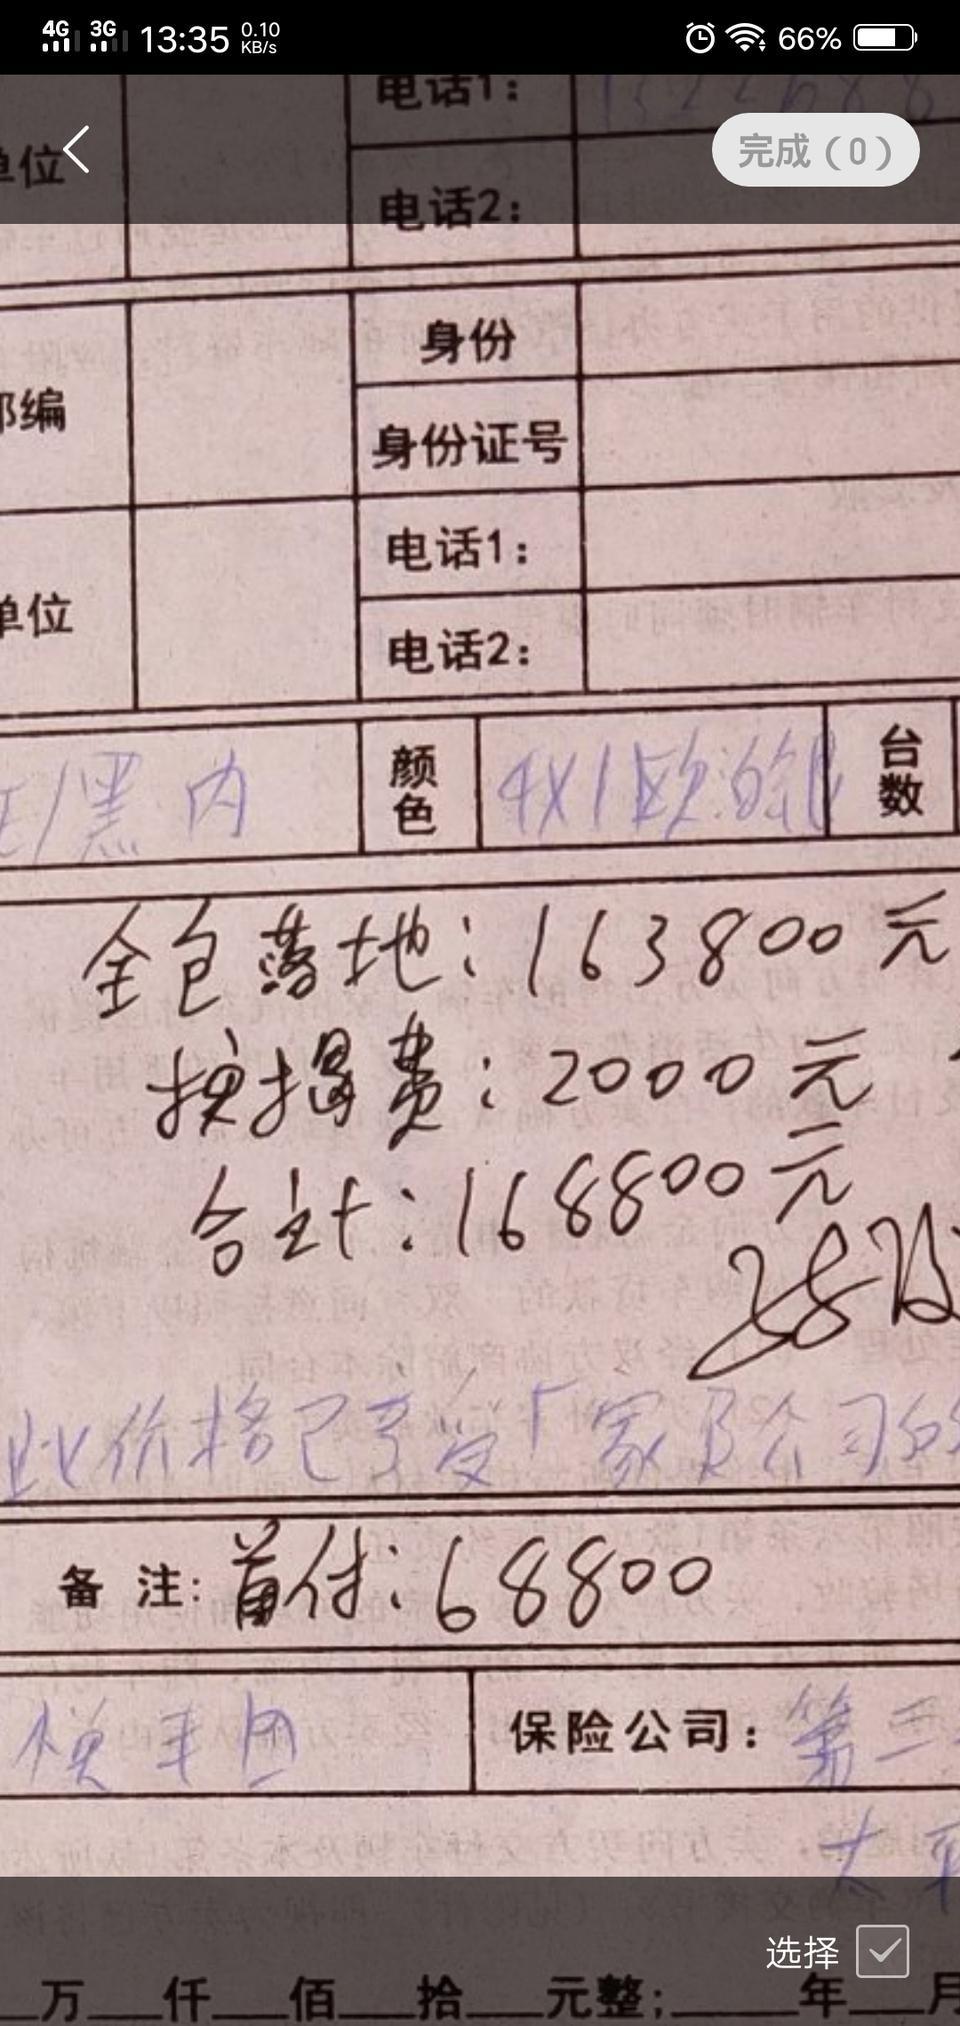 4G 3G 13:35 0.10 KB/s 66%
电话1:
完成（0）
单位
电话2:
身份
部编
身份证号
电话1:
单位
电话2:
/黑内 颜色 台数
全包落地:163800元
按揭费:2000元
合计:168800元
此价格已享受厂家及公司的
备 注: 首付:68800
保险公司: 第三
太平
选择
万 仟 佰 拾 元整; 年 月